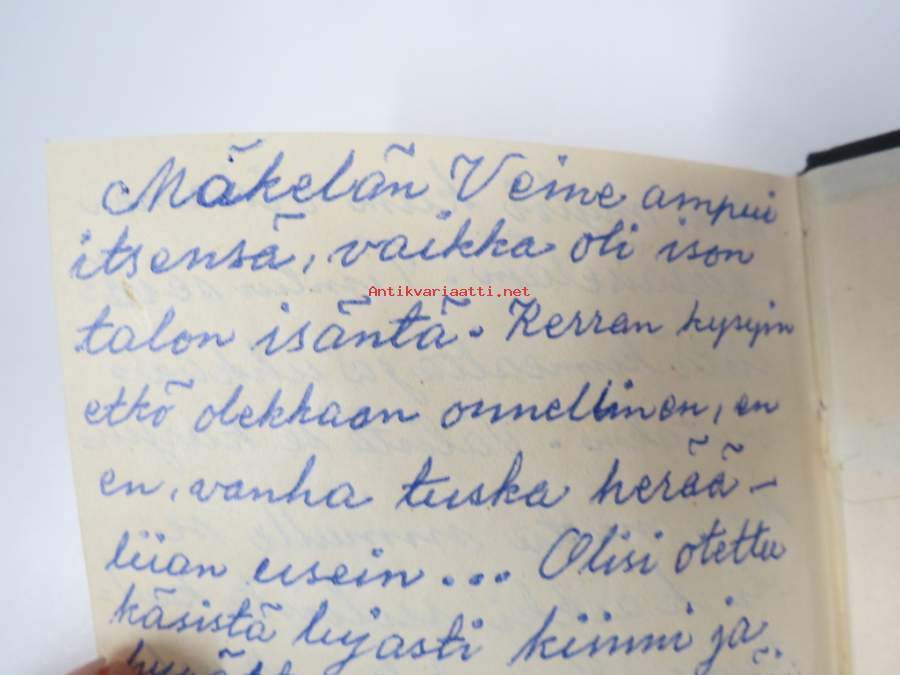 Mäkelän Veine ampui
itsensä, vaikka oli ison
Antikvariaatti.net
talon isäntä. Kerran kysyin
etkö olekkaan onnellinen, en
en, vanha tuska herää –
liian usein ... Olisi otettu
käsistä lujasti kiinni ja